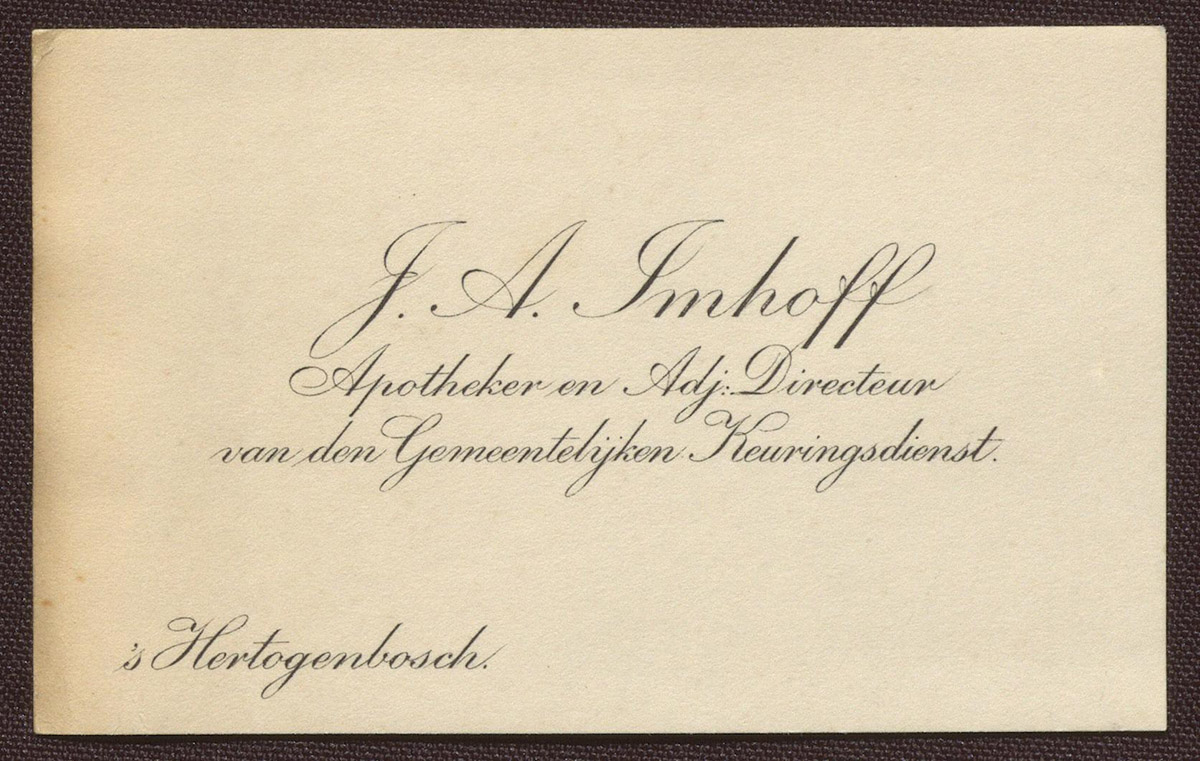 J. A. Imhoff
Apotheker en Adj: Directeur
van den Gemeentelijken Keuringsdienst.
's Hertogenbosch.